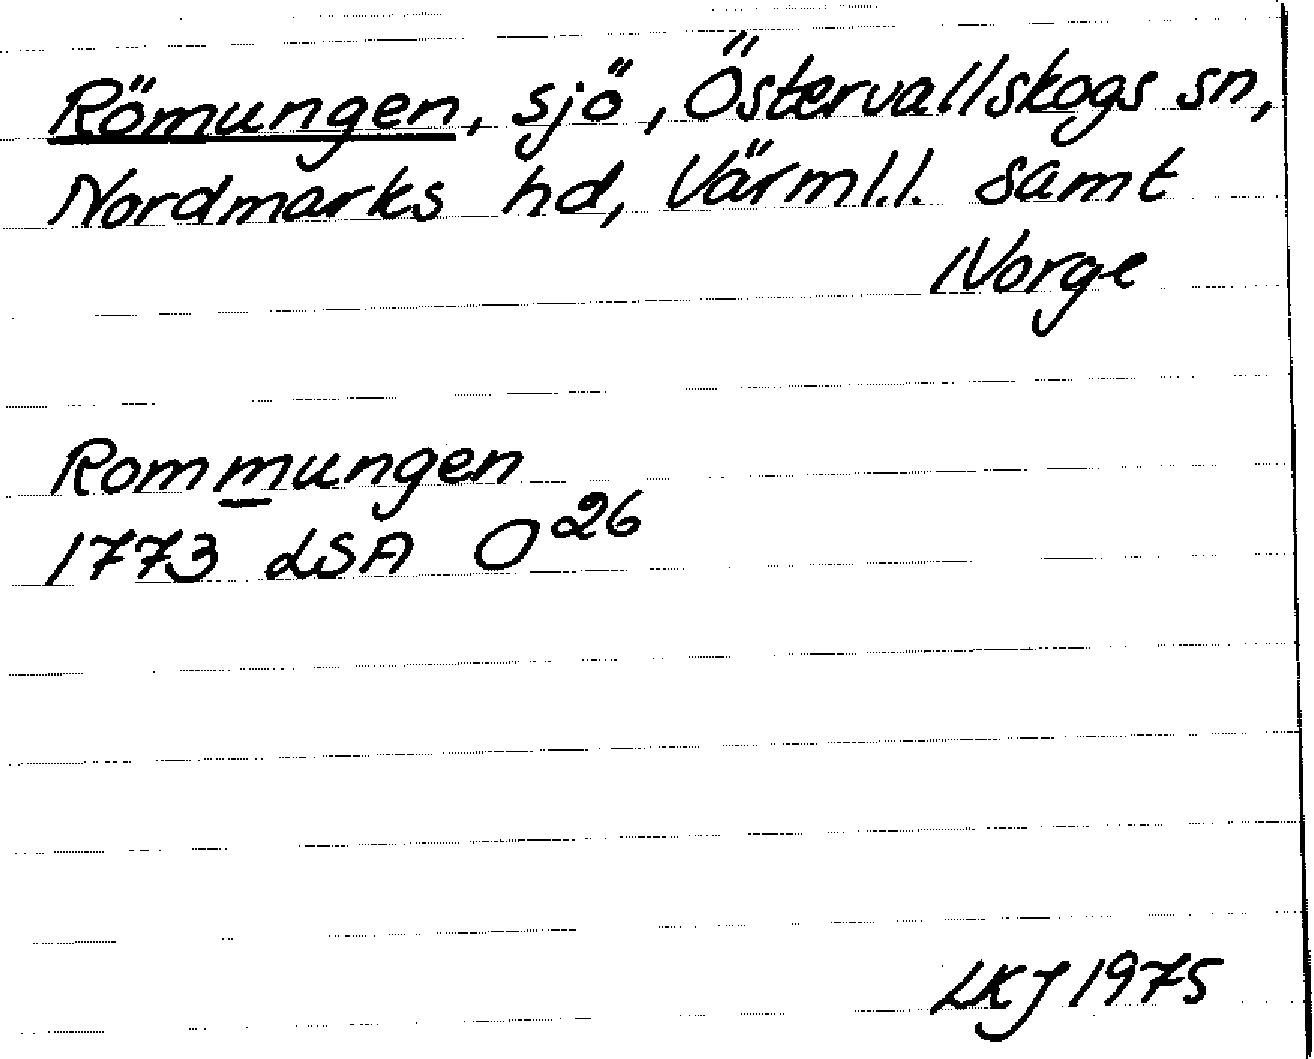 Römungen, sjö, Östervallskogs sn,
Nordmarks hd, Värml.l. samt
Norge
Rommungen
1773 LSA O26
LKJ 1975